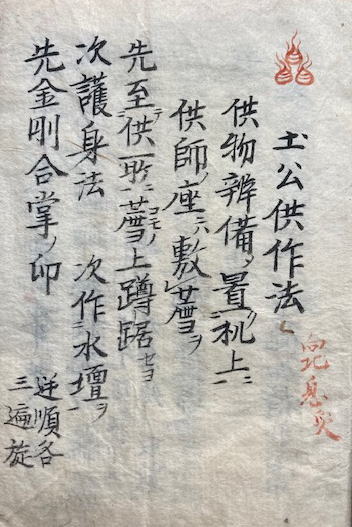 土公供作法
向北息災
供物辨備ヲ置机上ニ
供師ノ座ニハ敷薦ヲ
先至供所ニ薦コモノ上蹲踞セヨ
次護身法 次作水壇ヲ
先金剛合掌ノ印 逆順各
三遍旋